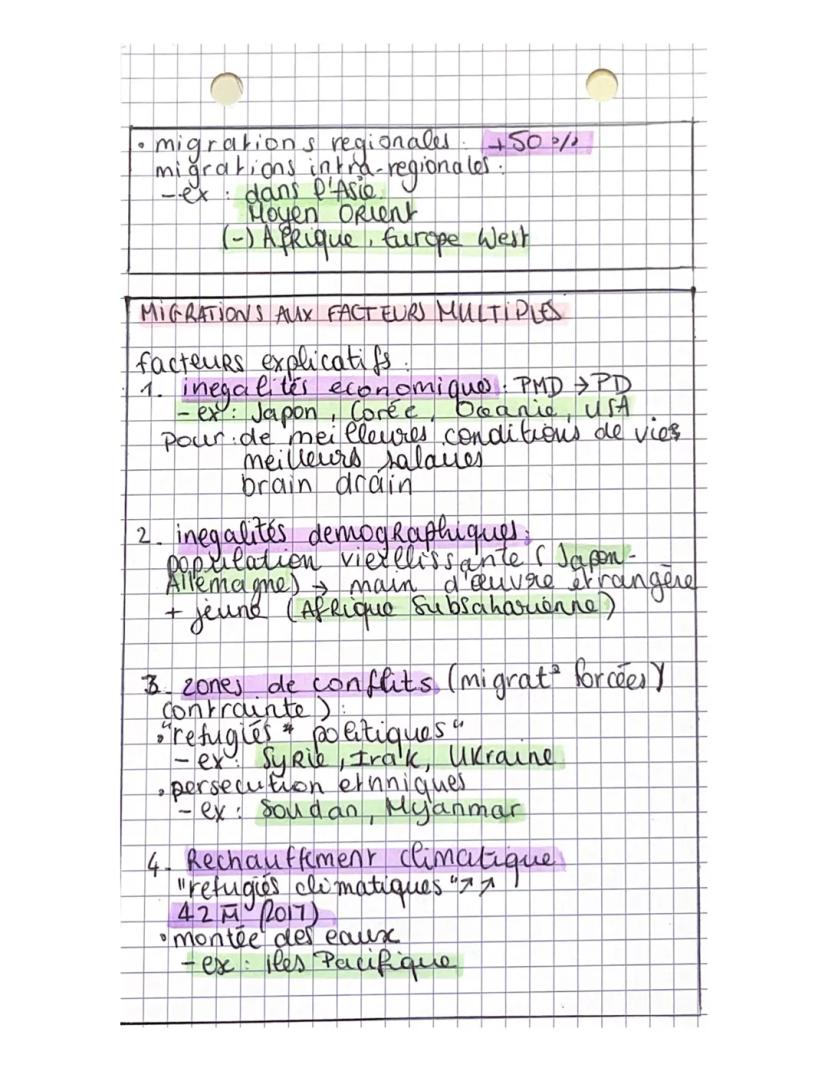 • migrations regionales : +50 %
migrations intra-regionales :
- ex : dans l'Asie
Moyen Orient
(-) Afrique, Europe West
MIGRATIONS AUX FACTEURS MULTIPLES
facteurs explicatifs :
1. inegalités economiques : PMD → PD
- ex : Japon, Corée, Océanie, USA
pour : de meilleures conditions de vies
meilleurs salaires
brain drain
2. inegalités demographiques :
population vieillissante (Japon-
Allemagne) → main d'œuvre étrangère
+ jeune (Afrique Subsaharienne)
3. zones de conflits (migratº forcées Y
contrainte) :
• "refugiés * politiques"
- ex : Syrie, Irak, Ukraine
• persecution ethniques
- ex : Soudan, Myanmar
4. Rechauffement climatique
"refugiés climatiques" ↗↗
42 M (2017)
• montée des eaux
- ex : iles Pacifique